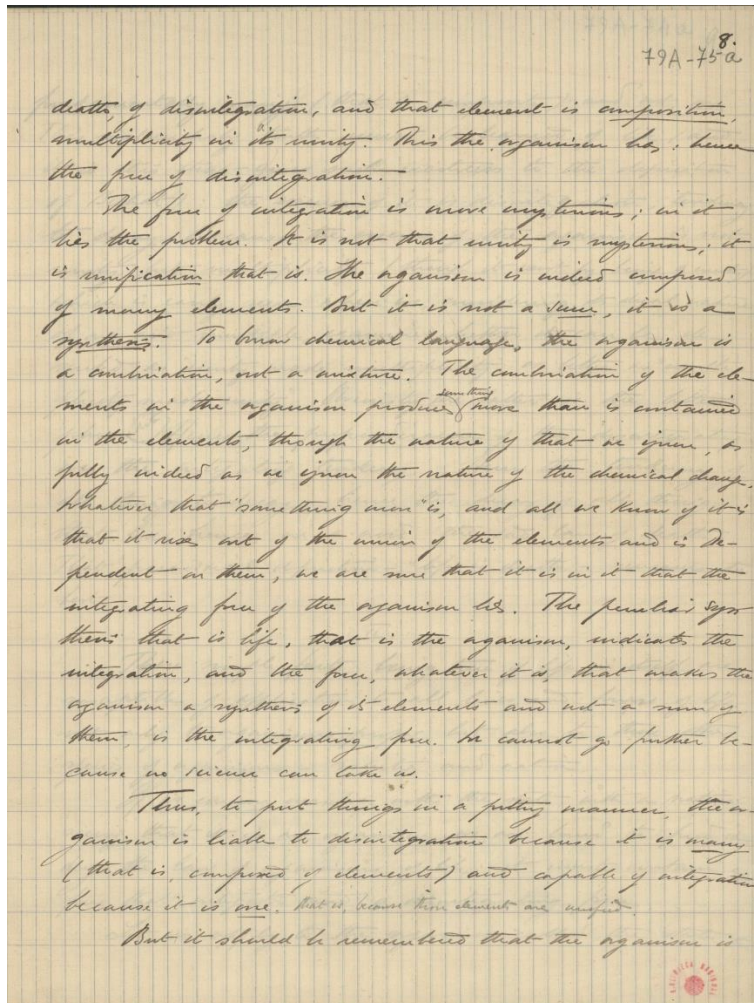 8.
79A-75a
death, of disintegration, and that element is composition,
multiplicity in its unity. This the organism has; hence
the force of disintegration.
The force of integration is more mysterious; in it
lies the problem. It is not that unity is mysterious; it
is unification that is. The organism is indeed composed
of many elements. But it is not a sum, it is a
synthesis. To know chemical language, the organism is
a combination, not a mixture. The combination of the ele-
ments in the organism produces something more than is contained
in the elements, though the nature of that we ignore, as
fully indeed as we ignore the nature of the chemical change.
Whatever that "something more" is, and all we know of it is
that it rises out of the union of the elements and is de-
pendent on them, we are sure that it is in it that the
integrating force of the organism lies. The peculiar syn-
thesis that is life, that is the organism, indicates the
integration, and the force, whatever it is, that makes the
organism a synthesis of its elements and not a sum of
them, is the integrating force. We cannot go further be-
cause no science can take us.
Thus, to put things in a pithy manner, the or-
ganism is liable to disintegration because it is many
(that is, composed of elements) and capable of integration
because it is one. that is, because those elements are unified.
But it should be remembered that the organism is